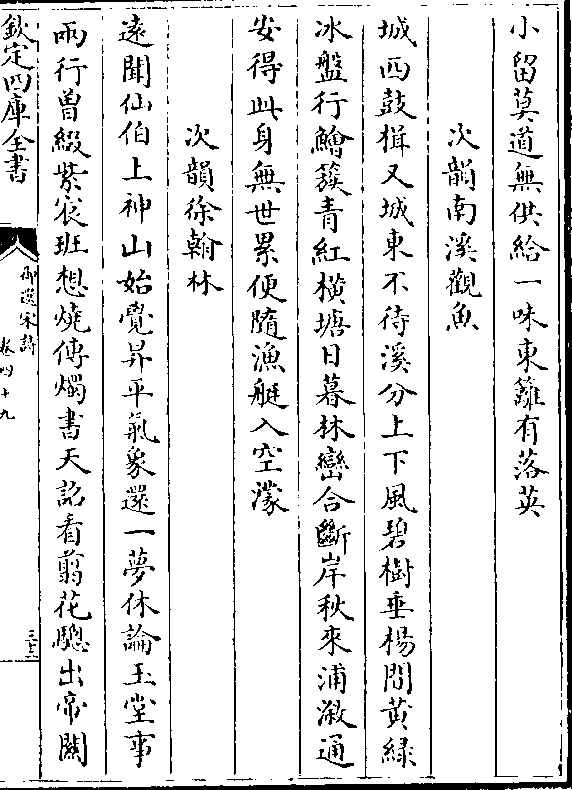 小留莫道無供給一味東籬有落英
次韻南溪觀魚
城西鼓楫又城東不待溪分上下風碧樹垂楊間黃緑
冰盤行鱠簇青紅橫塘日暮林巒合斷岸秋來浦溆通
安得此身無世累便隨漁艇入空濛
次韻徐翰林
遠聞仙伯上神山始覺昇平氣象還一夢休論玉堂事
兩行曽綴紫宸班想燒傳燭書天詔看剪花驄出帝關
欽定四庫全書
御選宋詩
卷四十九
三十二